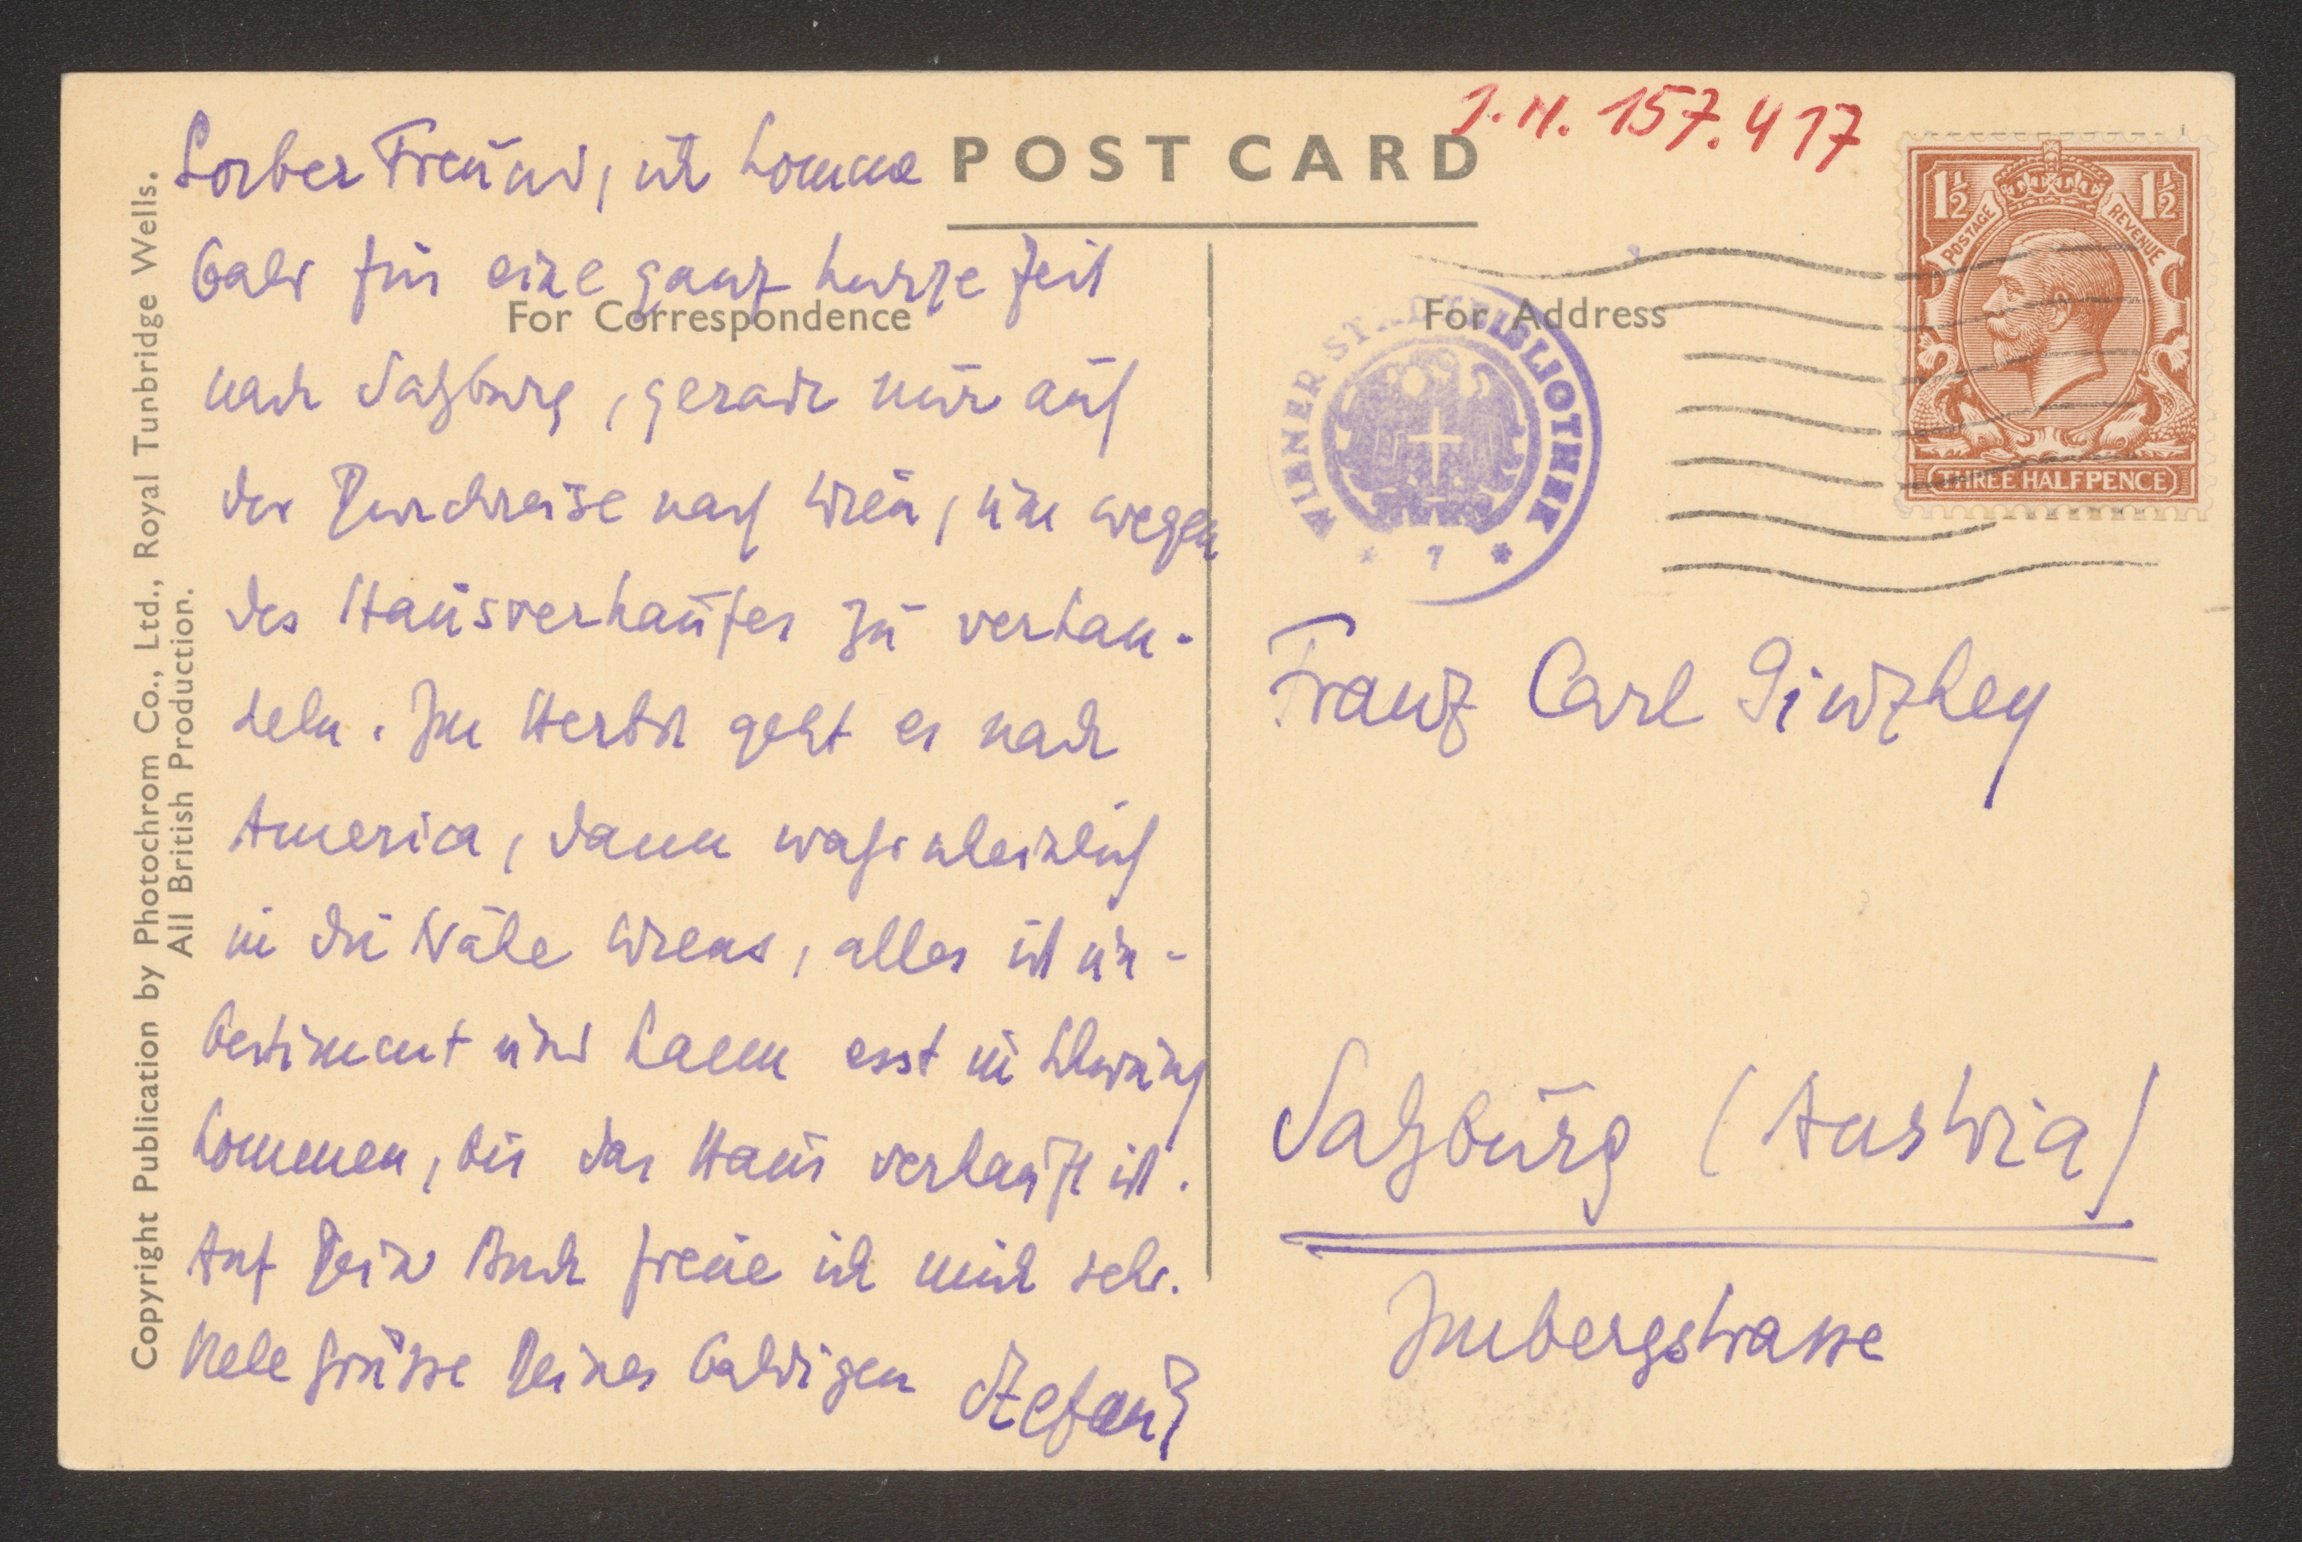 Lieber Freund, ich komme
bald für eine ganz kurze Zeit
nach Salzburg, gerade nur auf
der Durchreise nach Wien, um wegen
des Hausverkaufes zu verhan-
deln. Im Herbst geht es nach
America, dann wahrscheinlich
in die Nähe Wiens, alles ist un-
bestimmt und kann erst in Schwung
kommen, bis das Haus verkauft ist.
Auf Dein Buch freue ich mich sehr.
Viele Grüsse Deines baldigen Stefan Z
Copyright Publication by Photochrom Co., Ltd., Royal Tunbridge Wells.
All British Production.
POST CARD
For Correspondence
For Address
I.N. 157.417
1½ 1½
POSTAGE REVENUE
THREE HALFPENCE
WIENER STADTBIBLIOTHEK
* 7 *
Franz Carl Ginzkey
Salzburg (Austria)
Imbergstrasse